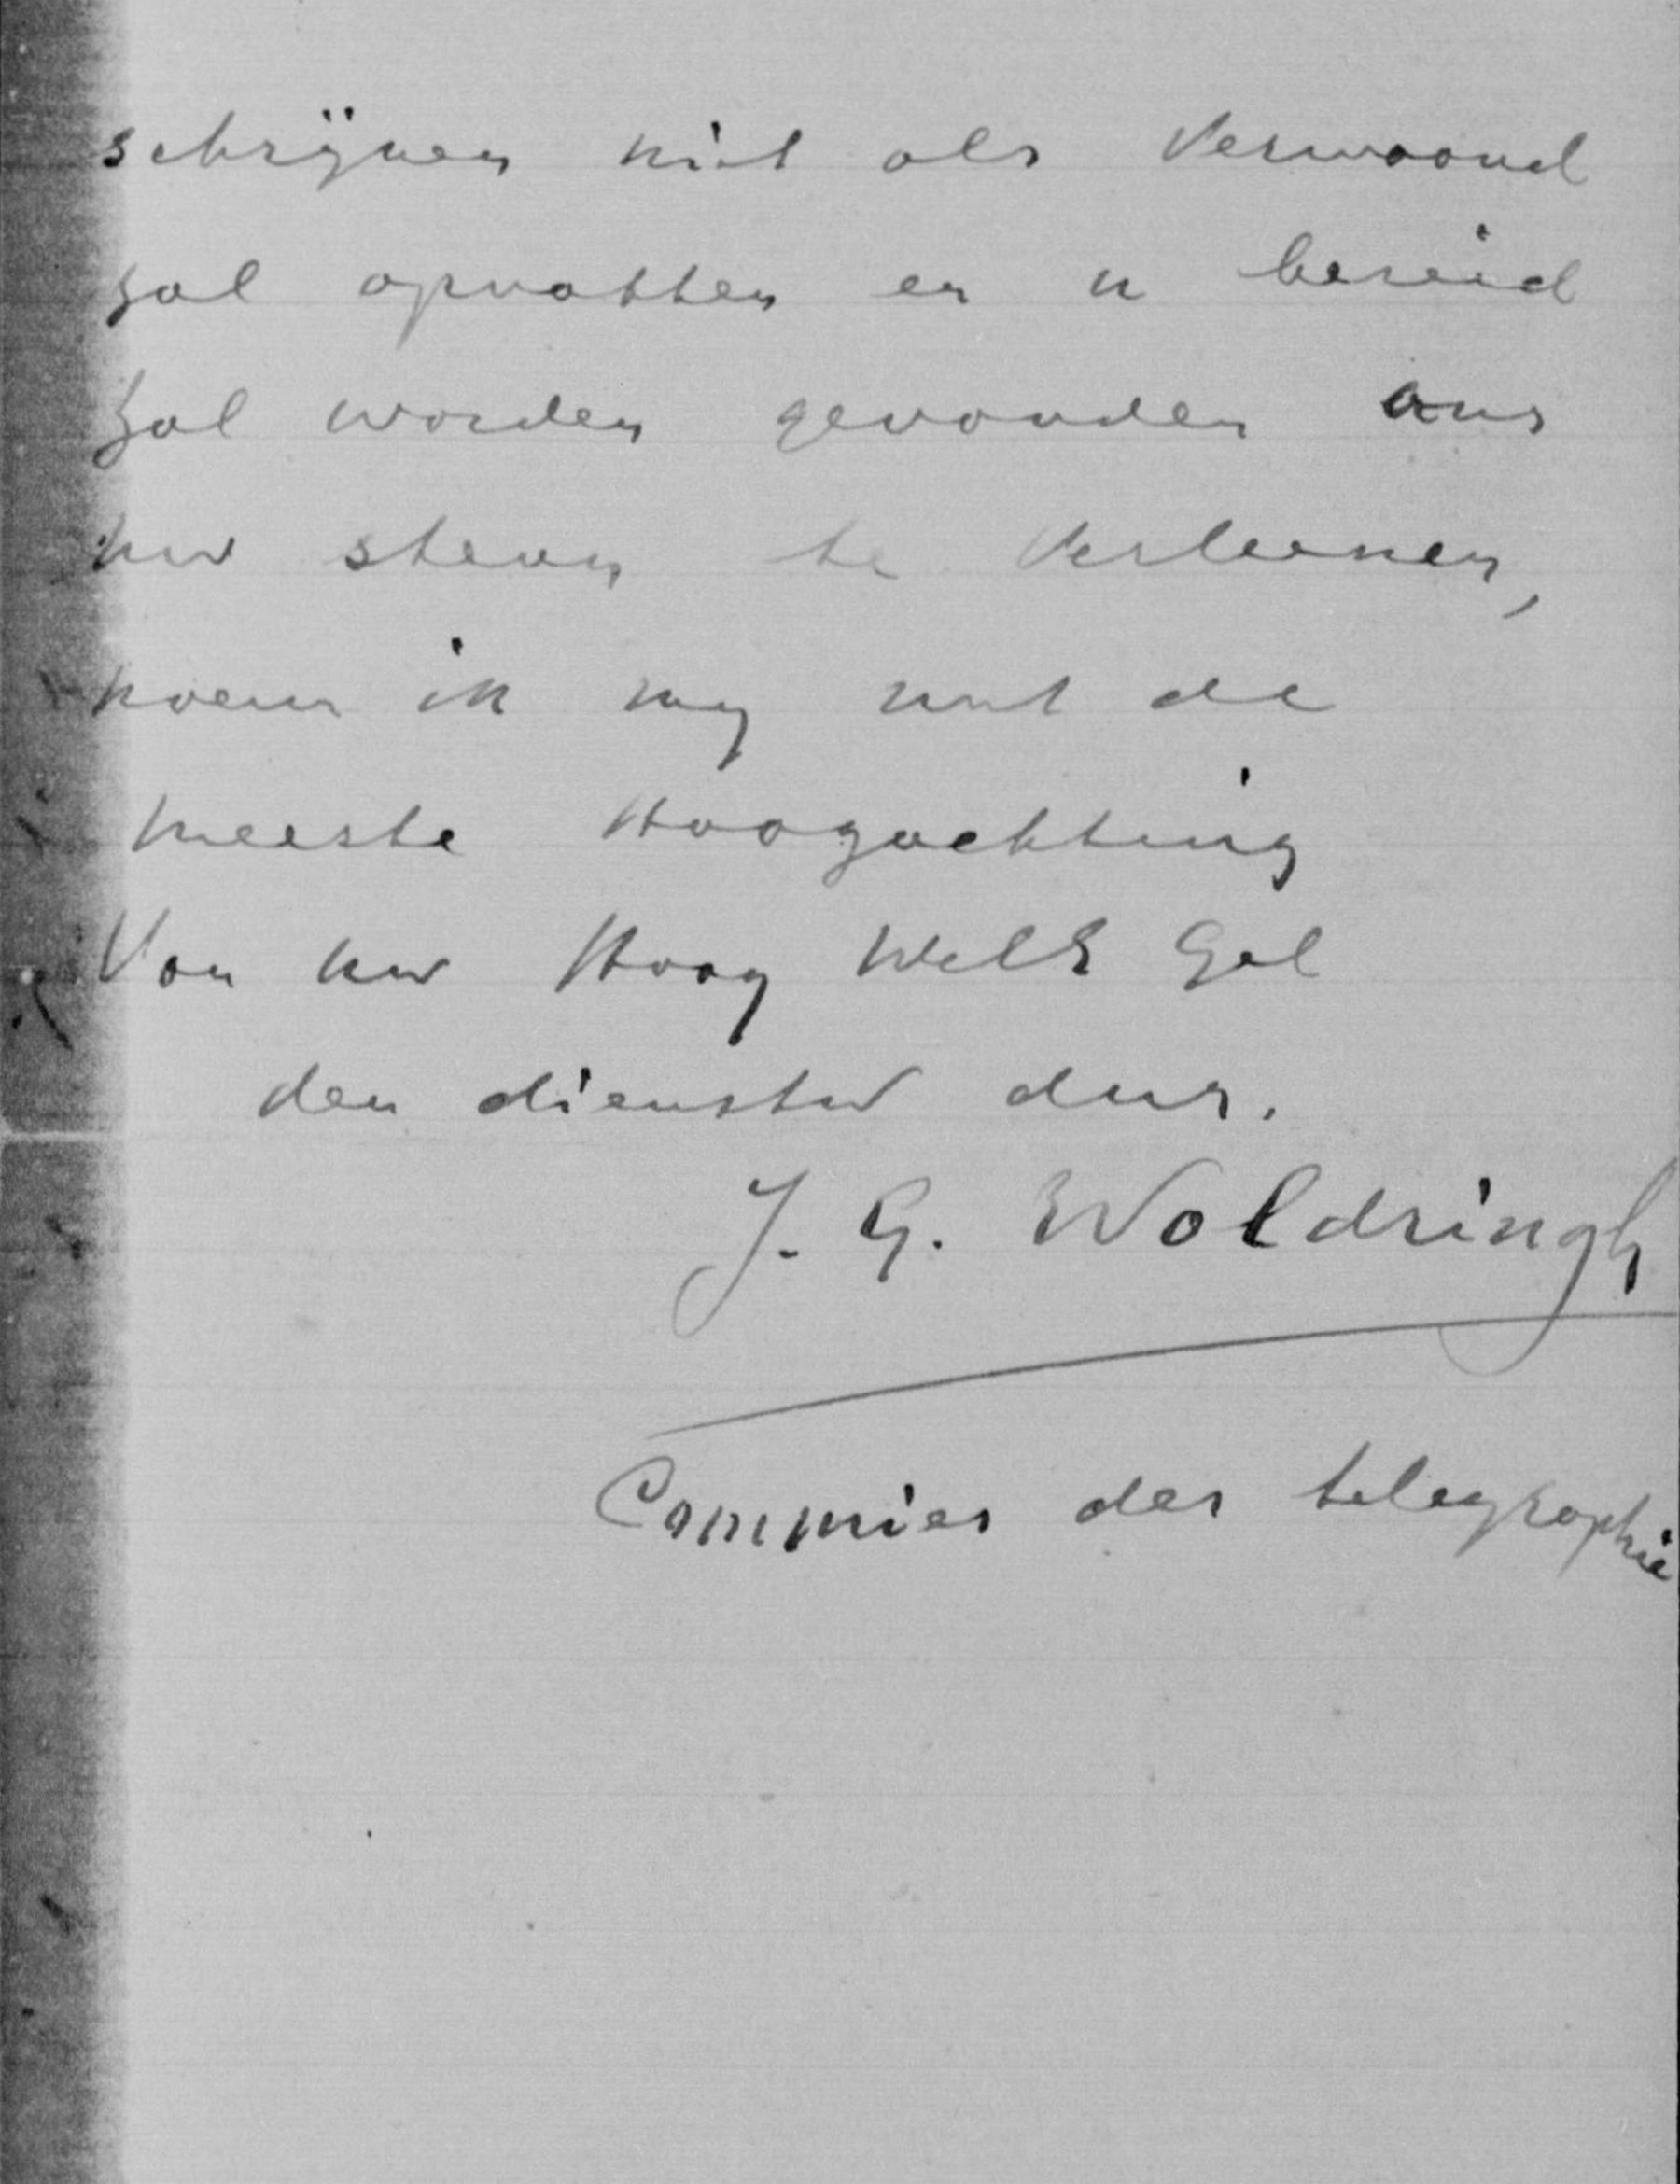 schrijven niet als verwaand
zal opvatten en u bereid
zal worden gevonden ons
uw steun te verleenen,
noem ik mij met de
meeste Hoogachting
Van uw Hoog WelE Gel
den dienstw dnr.
J. G. Woldringh
Commies der telegraphie